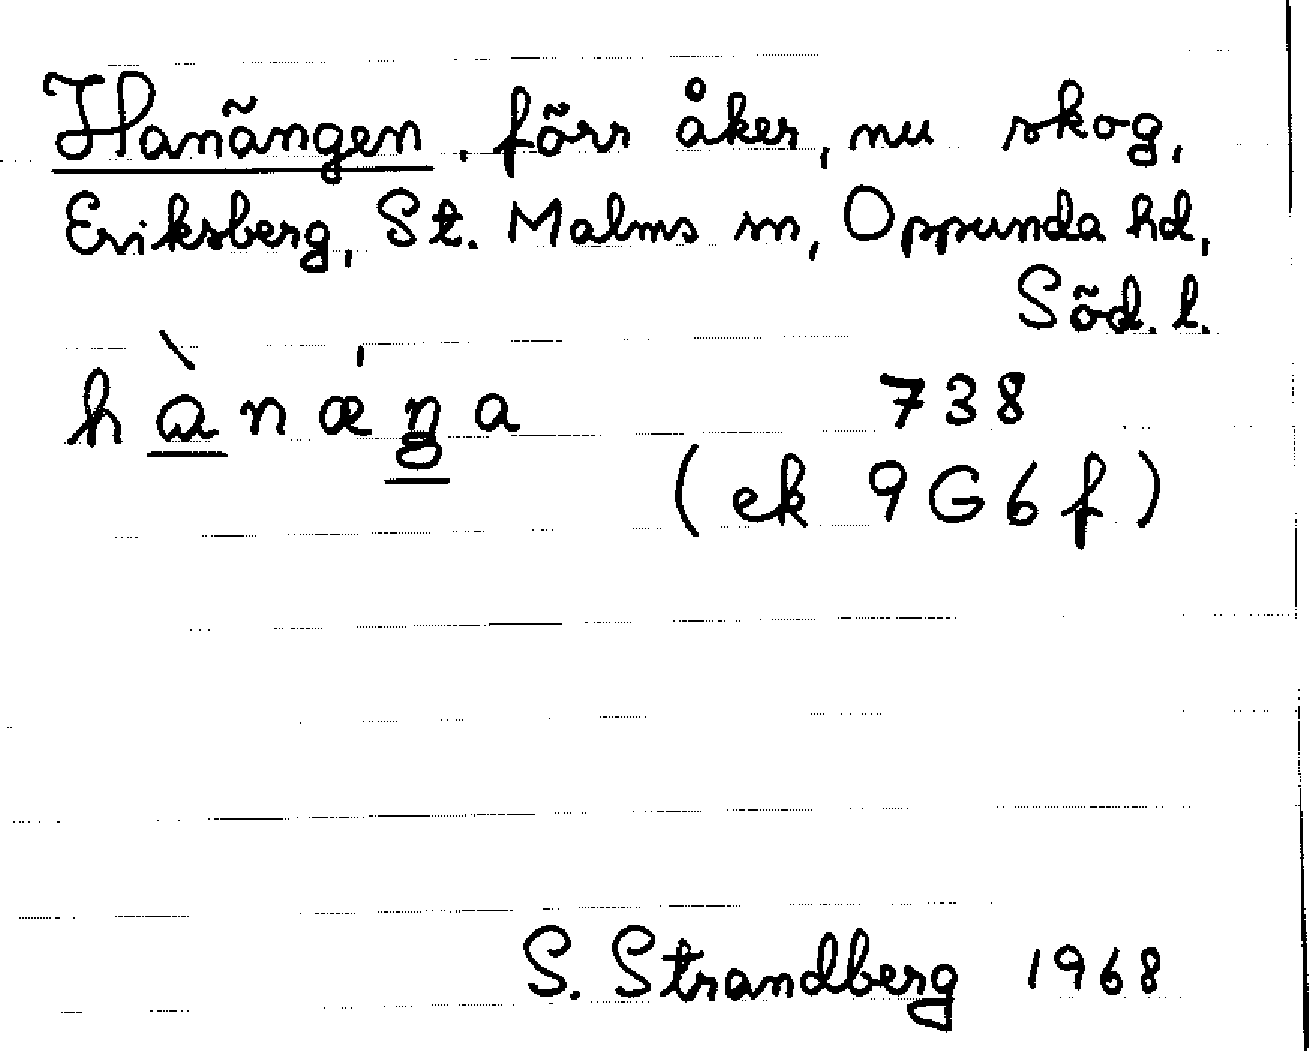 Hanängen, förr åker, nu skog,
Eriksberg, St. Malms sn, Oppunda hd,
Söd. l.
hànæŋa 738
(ek 9G6f)
S. Strandberg 1968